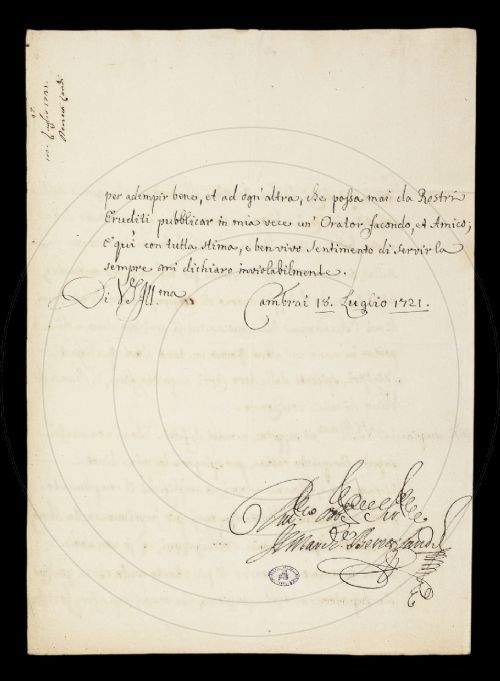 Luglio 1721.
per adempir bene, et ad ogn'altra, che possa mai da Rostri
Eruditi pubblicar in mia vece un' Orator facondo, et Amico;
E quì con tutta stima, e ben vivo sentimento di servir la
sempre mi dichiaro inviolabilmente.
Di VS Ill.ma Cambrai 18. Luglio 1721.